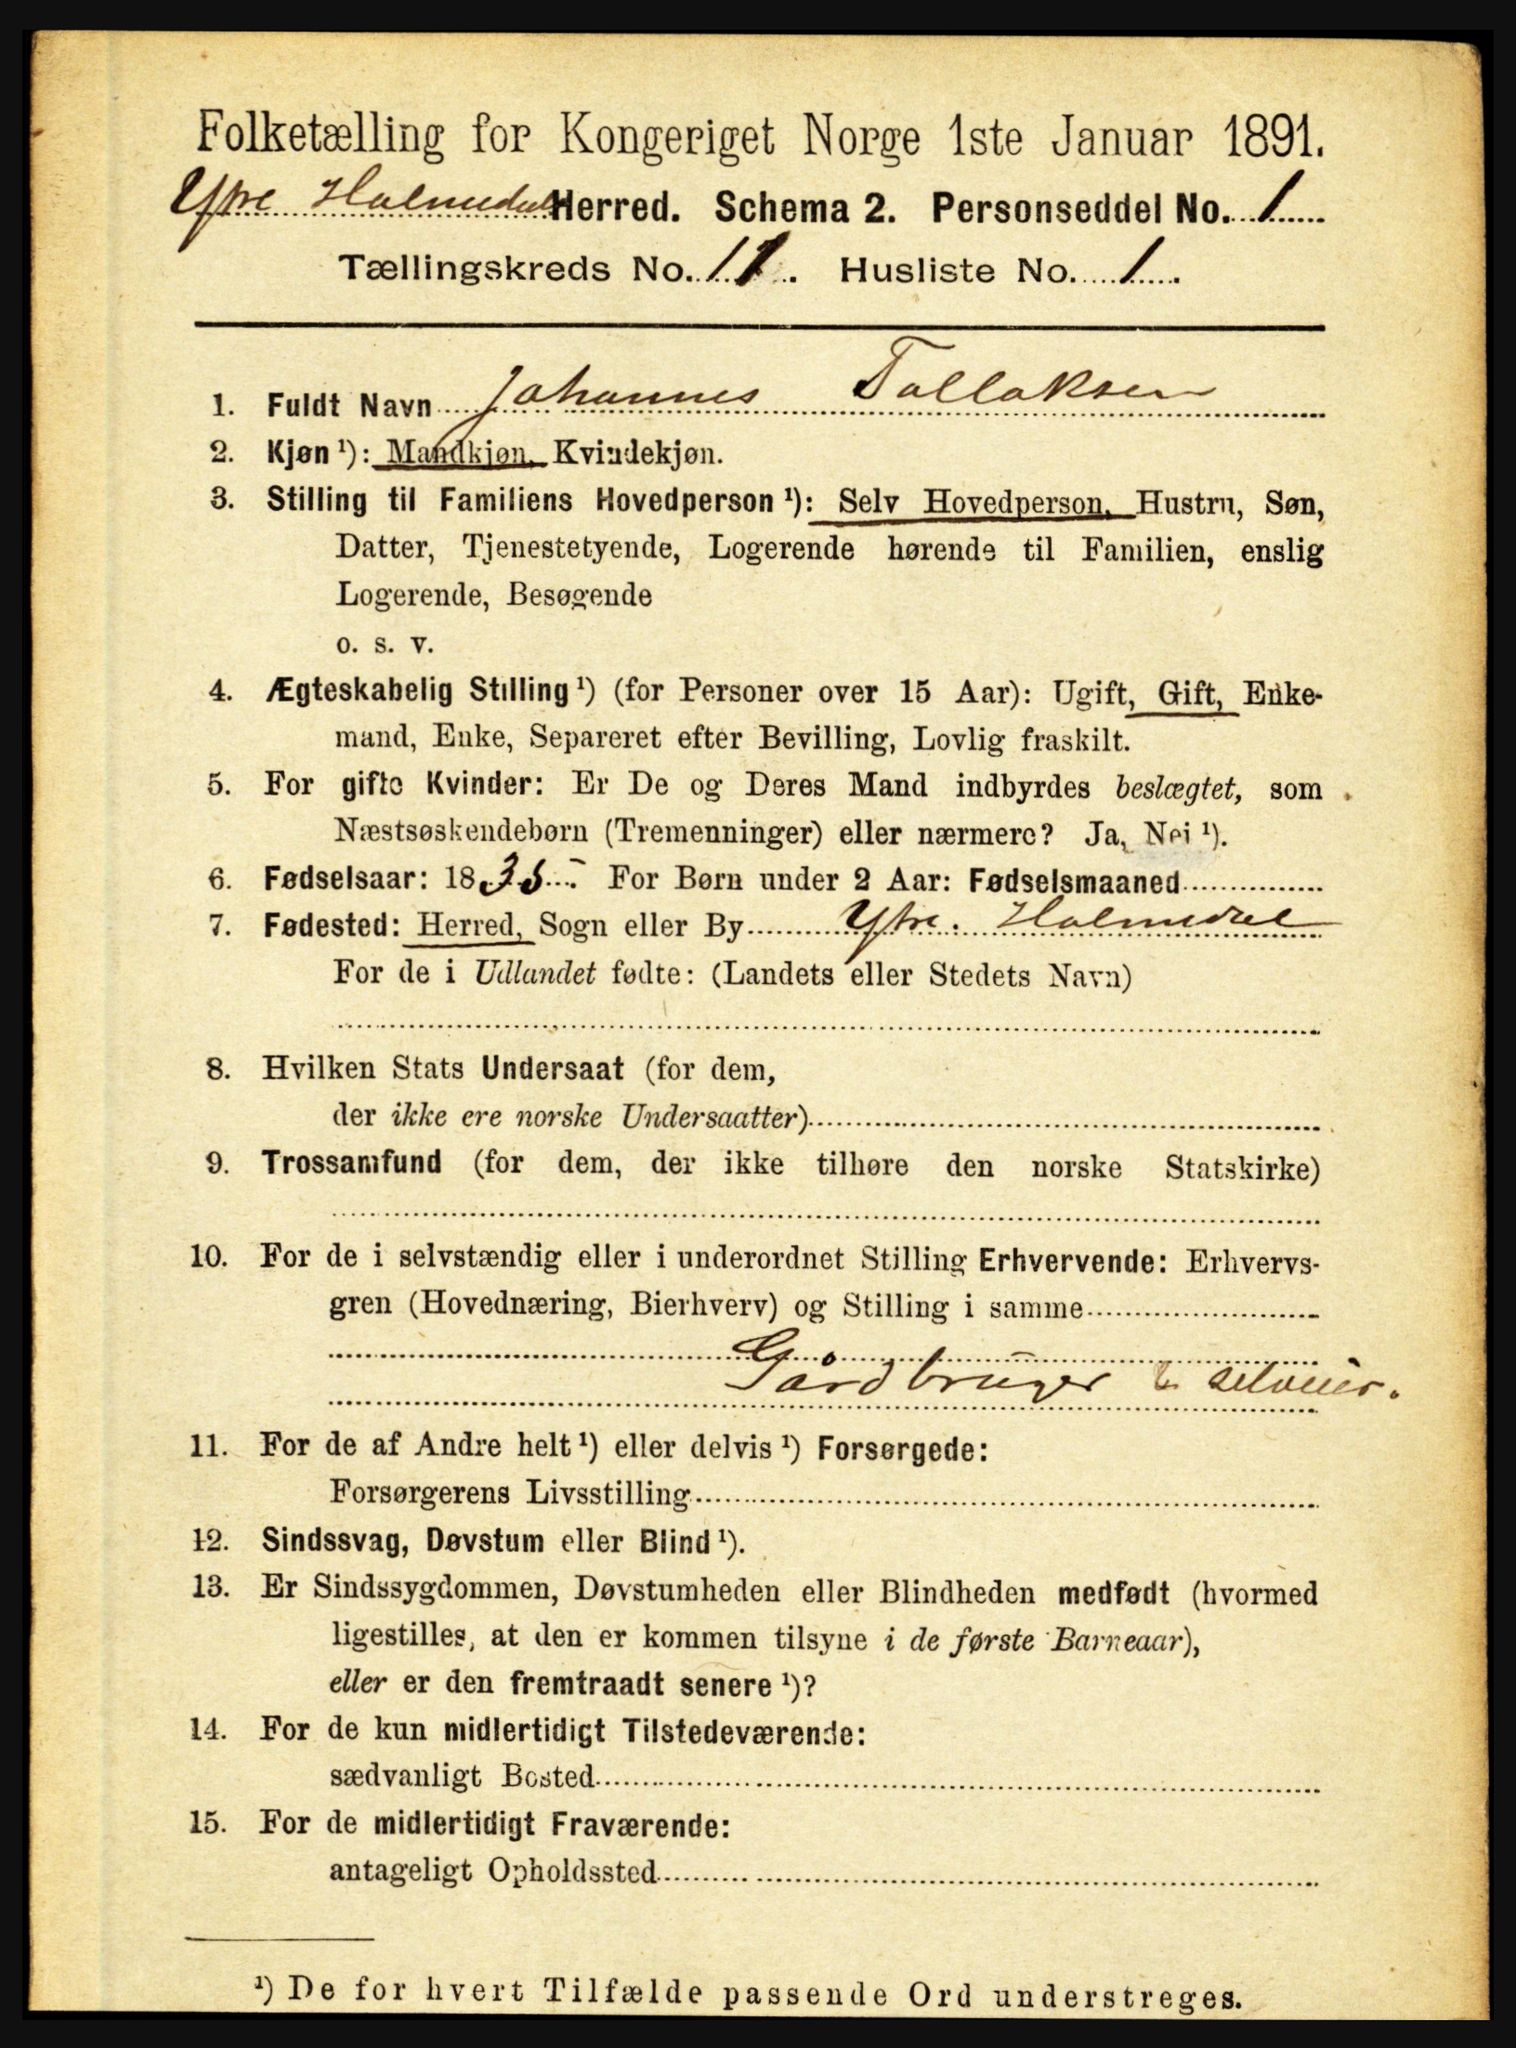 Folketælling for Kongeriget Norge 1ste Januar 1891.
Ytre Holmedal Herred. Schema 2. Personseddel No. 1
Tællingskreds No. 11. Husliste No. 1.
1. Fuldt Navn Johannes Tollaksen
2. Kjøn ¹): Mandkjøn, Kvindekjøn.
3. Stilling til Familiens Hovedperson ¹): Selv Hovedperson, Hustru, Søn,
Datter, Tjenestetyende, Logerende hørende til Familien, enslig
Logerende, Besøgende
o. s. v.
4. Ægteskabelig Stilling ¹) (for Personer over 15 Aar): Ugift, Gift, Enke-
mand, Enke, Separeret efter Bevilling, Lovlig fraskilt.
5. For gifte Kvinder: Er De og Deres Mand indbyrdes beslægtet, som
Næstsøskendebørn (Tremenninger) eller nærmere? Ja, Nei ¹).
6. Fødselsaar: 1835. For Børn under 2 Aar: Fødselsmaaned
7. Fødested: Herred, Sogn eller By Ytre Holmedal
For de i Udlandet fødte: (Landets eller Stedets Navn)
8. Hvilken Stats Undersaat (for dem,
der ikke ere norske Undersaatter)
9. Trossamfund (for dem, der ikke tilhøre den norske Statskirke)
10. For de i selvstændig eller i underordnet Stilling Erhvervende: Erhvervs-
gren (Hovednæring, Bierhverv) og Stilling i samme
Gårdbruger & selveier.
11. For de af Andre helt ¹) eller delvis ¹) Forsørgede:
Forsørgerens Livsstilling
12. Sindssvag, Døvstum eller Blind ¹).
13. Er Sindssygdommen, Døvstumheden eller Blindheden medfødt (hvormed
ligestilles, at den er kommen tilsyne i de første Barneaar),
eller er den fremtraadt senere ¹)?
14. For de kun midlertidigt Tilstedeværende:
sædvanligt Bosted
15. For de midlertidigt Fraværende:
antageligt Opholdssted
¹) De for hvert Tilfælde passende Ord understreges.